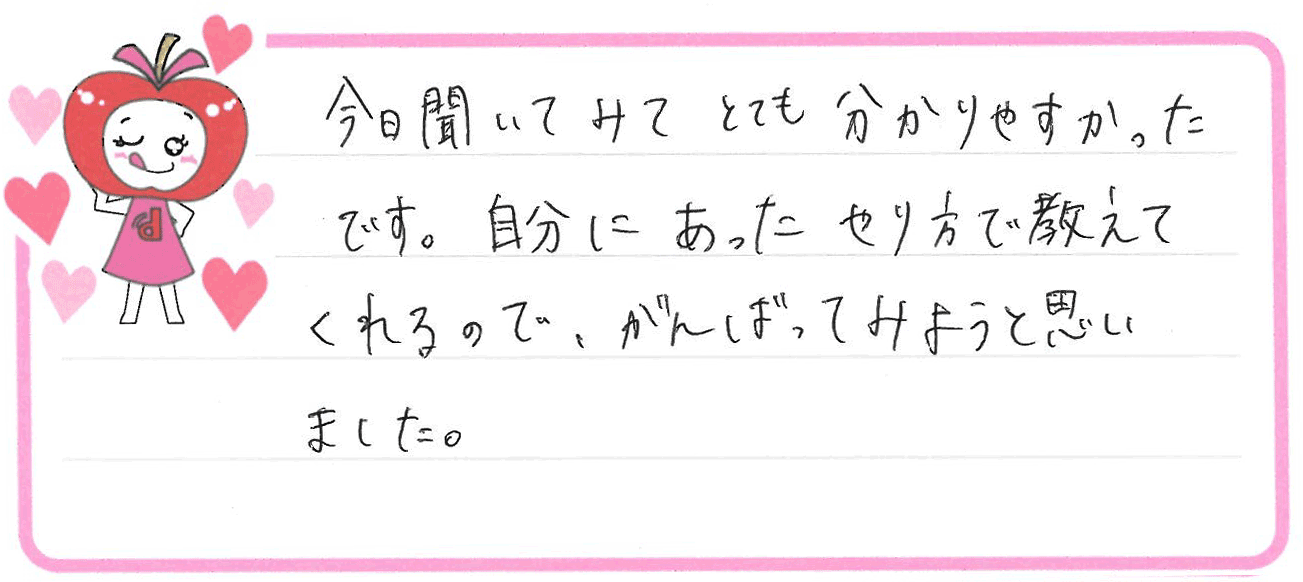 今日聞いてみてとても分かりやすかった
です。自分にあったやり方で教えて
くれるので、がんばってみようと思い
ました。